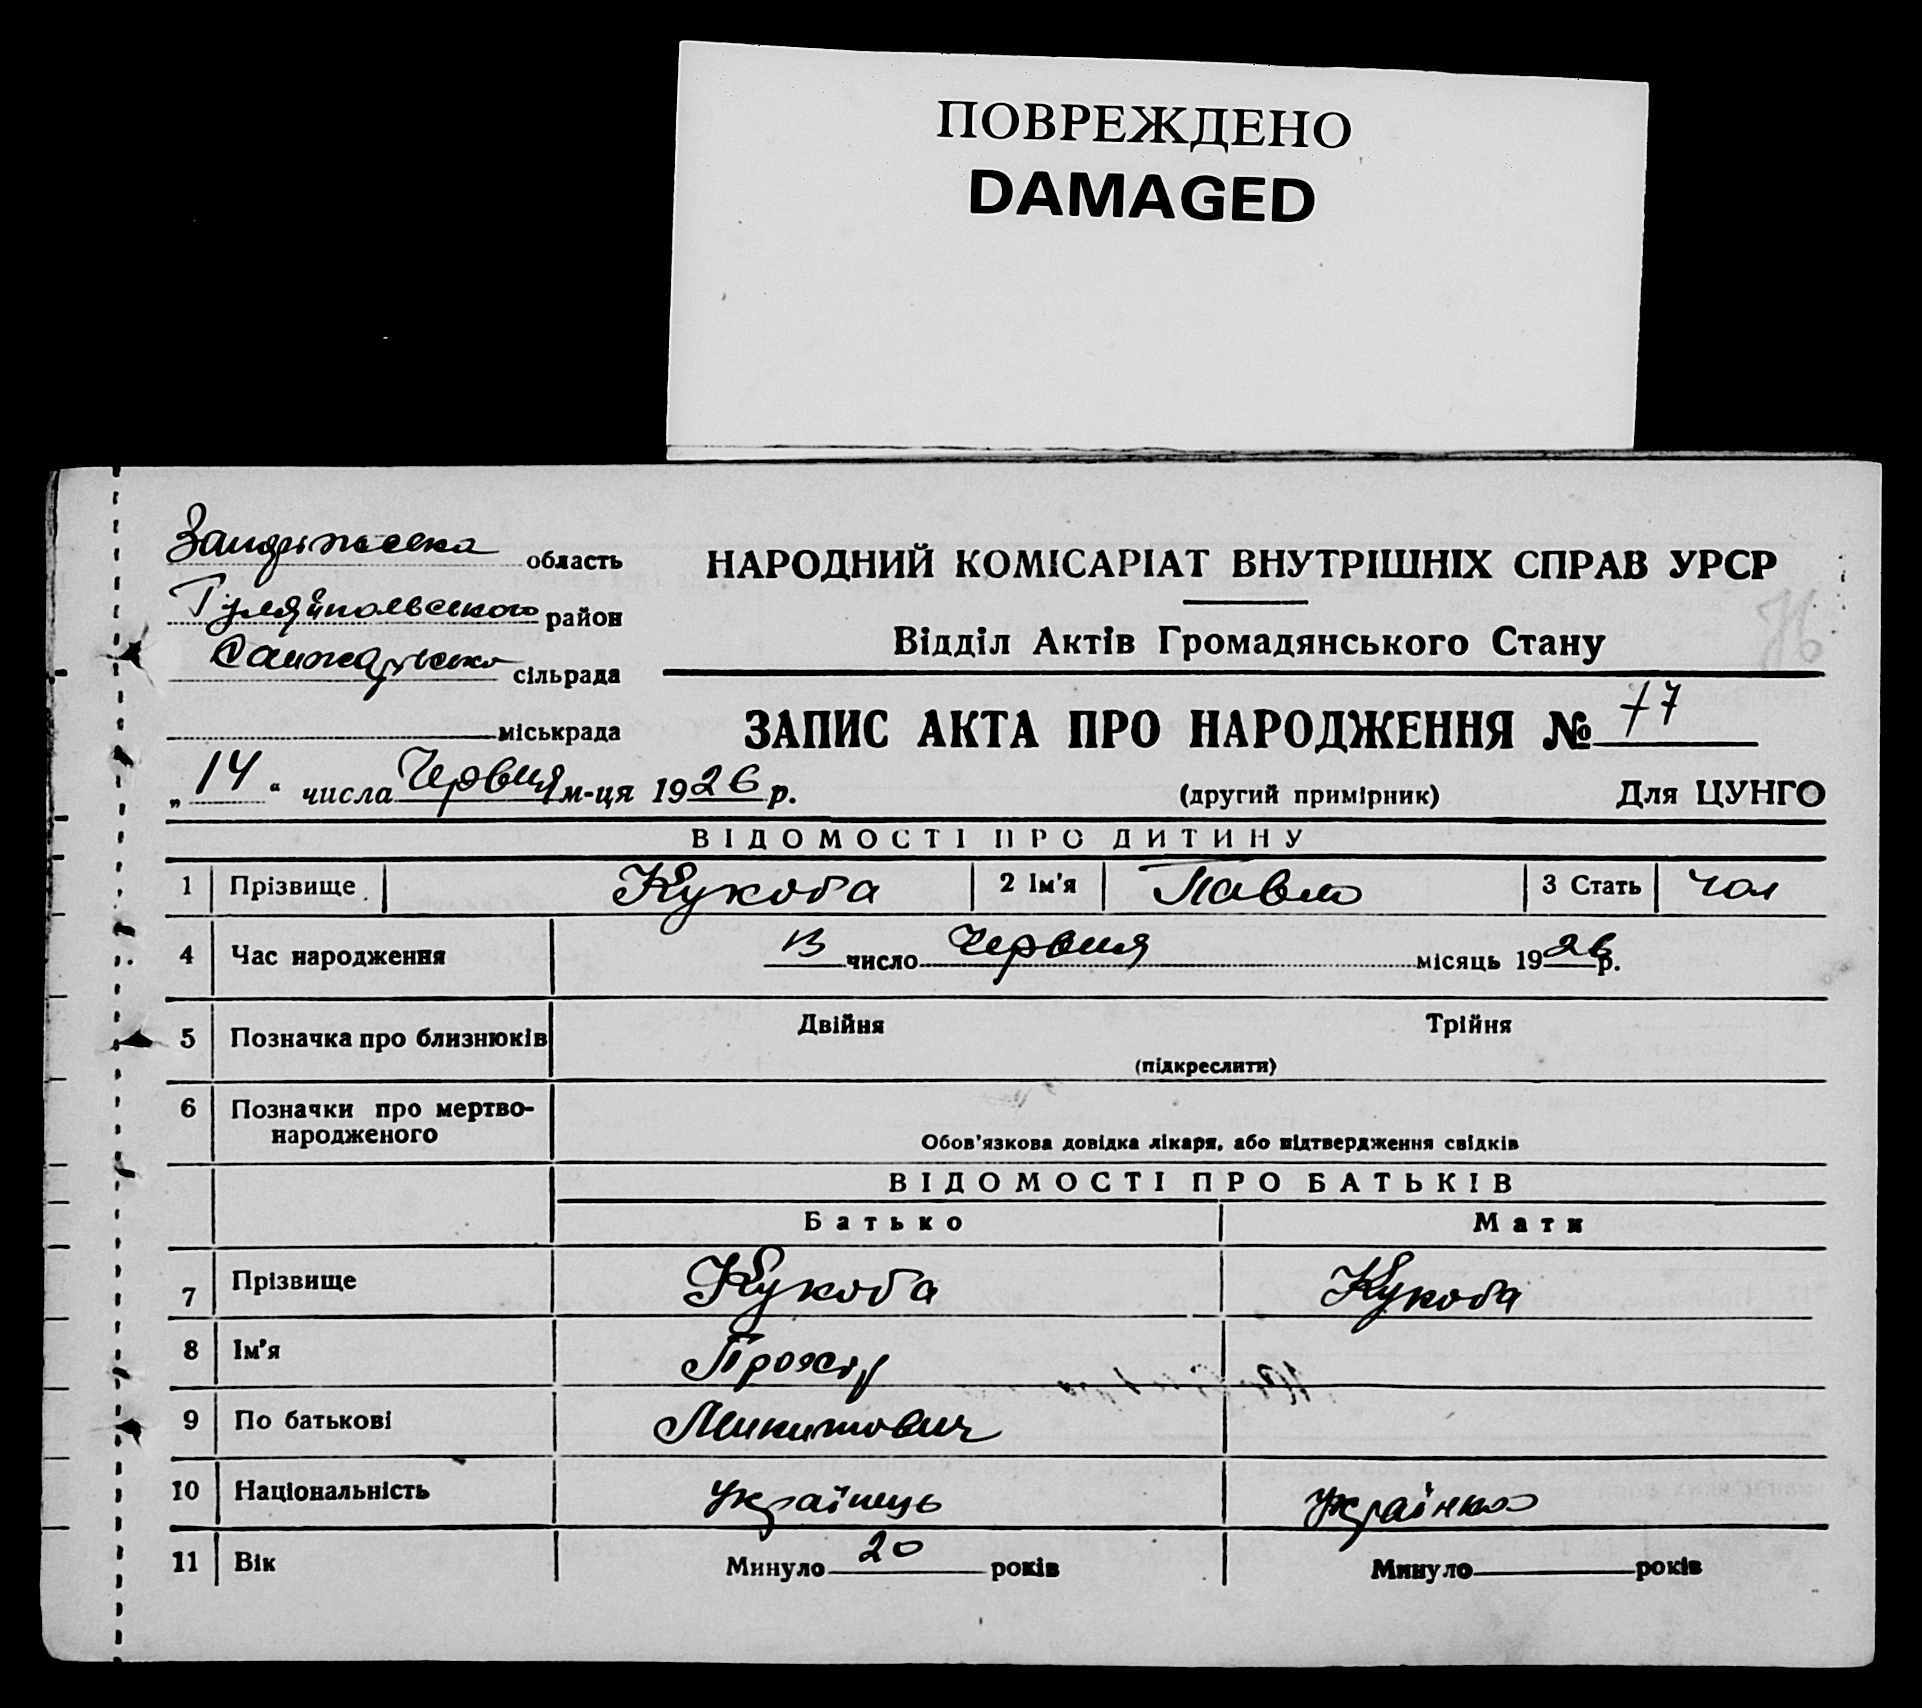 ПОВРЕЖДЕНО
DAMAGED
область
Гуляйпольського район
сільрада
міськрада
„14“ числа Червня м-ця 1926 р.
НАРОДНИЙ КОМІСАРІАТ ВНУТРІШНІХ СПРАВ УРСР
Відділ Актів Громадянського Стану
ЗАПИС АКТА ПРО НАРОДЖЕННЯ № 77
(другий примірник) Для ЦУНГО
ВІДОМОСТІ ПРО ДИТИНУ
1 Прізвище Кукоба 2 Ім'я Павло 3 Стать чол
4 Час народження 13 число Червня місяць 1926 р.
5 Позначка про близнюків Двійня Трійня
(підкреслити)
6 Позначки про мертво-
народженого
Обов'язкова довідка лікаря, або підтвердження свідків
ВІДОМОСТІ ПРО БАТЬКІВ
Батько Мати
7 Прізвище Кукоба Кукоба
8 Ім'я
9 По батькові Микитович
10 Національність Українець Українка
11 Вік Минуло 20 років Минуло років